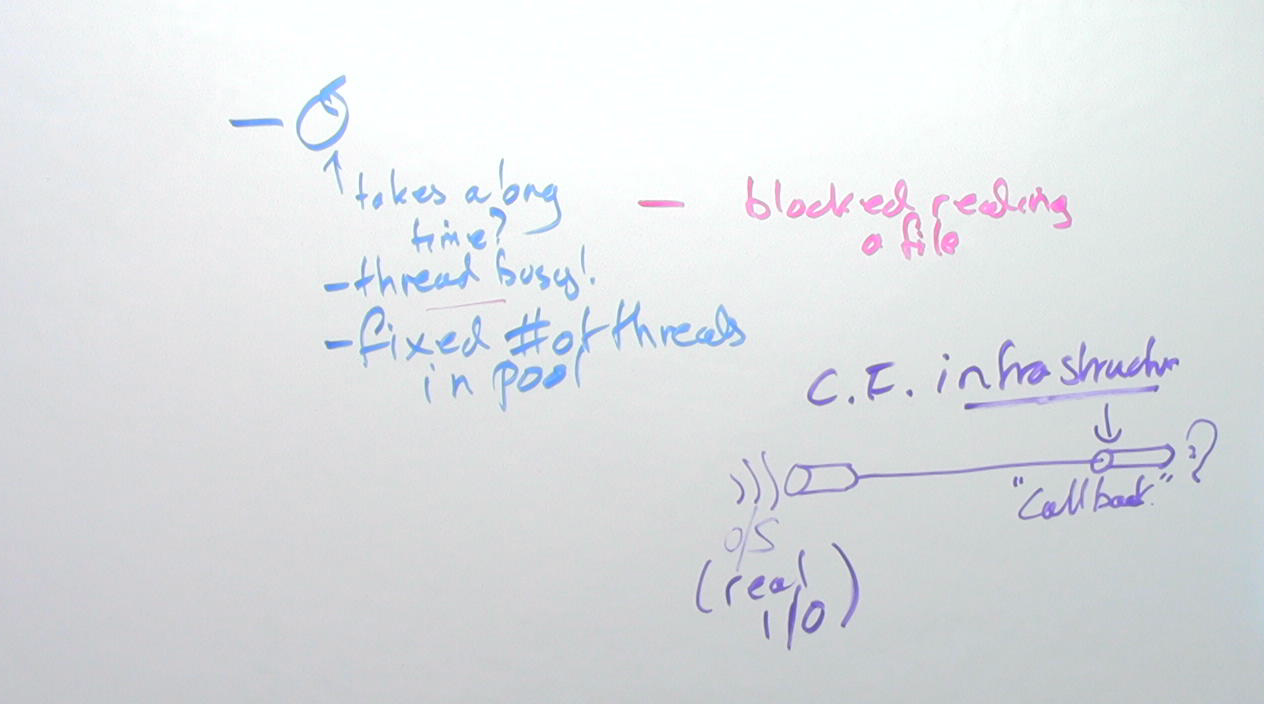 takes a long
time?
- thread busy!
- fixed # of threads
in pool
- blocked reading
a file
C.E. infrastructur
?
"Callback"
O/S
(real
I/O)